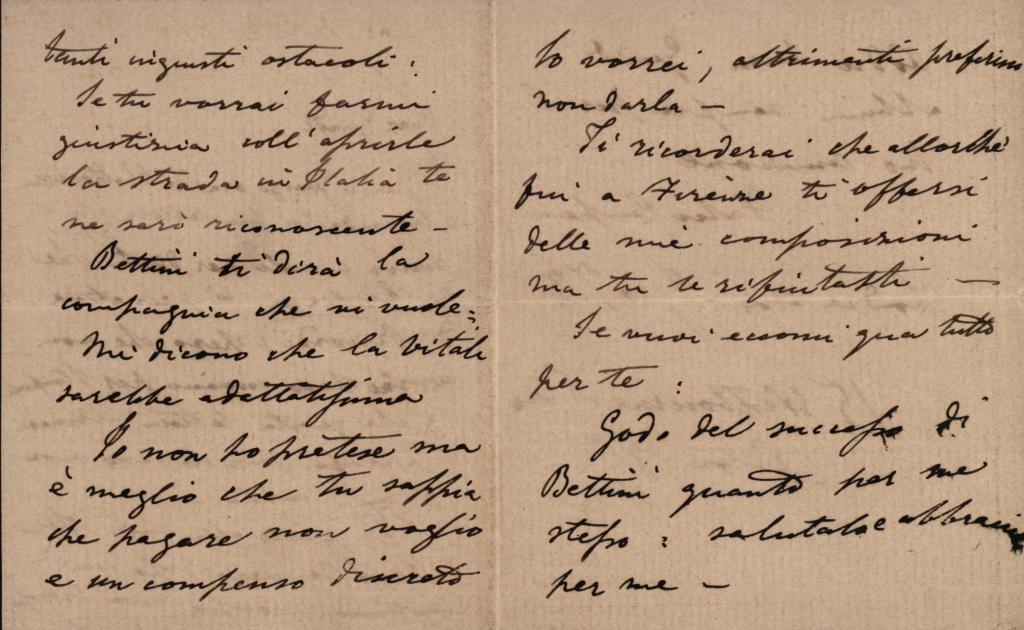 tanti ingiusti ostacoli:
Se tu vorrai farmi
giustizia coll'aprirle
la strada in Italia te
ne sarò riconoscente –
Bettini ti dirà la
compagnia che vi vuole:
Mi dicono che la Vitali
sarebbe adattatissima
Io non ho pretese ma
è meglio che tu sappia
che pagare non voglio
e un compenso discreto
lo vorrei, altrimenti preferisco
non darla –
Ti ricorderai che allorchè
fui a Firenze ti offersi
delle mie composizioni
ma tu le rifiutasti –
Se vuoi eccomi qua tutto
per te :
Godo del successo di
Bettini quanto per me
stesso : salutalo e abbraccia
per me –